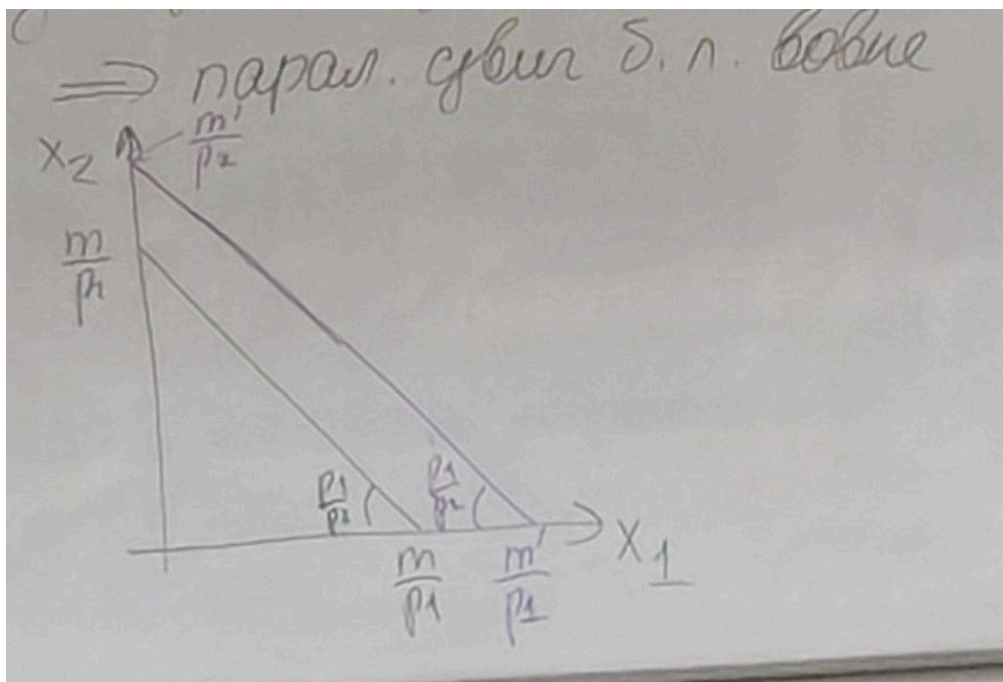 ⇒ парал. сдвиг б. л. вовне
x₂
m'/p₂
m/p₂
p1/p2
p1/p2
m/p1
m'/p1
x₁